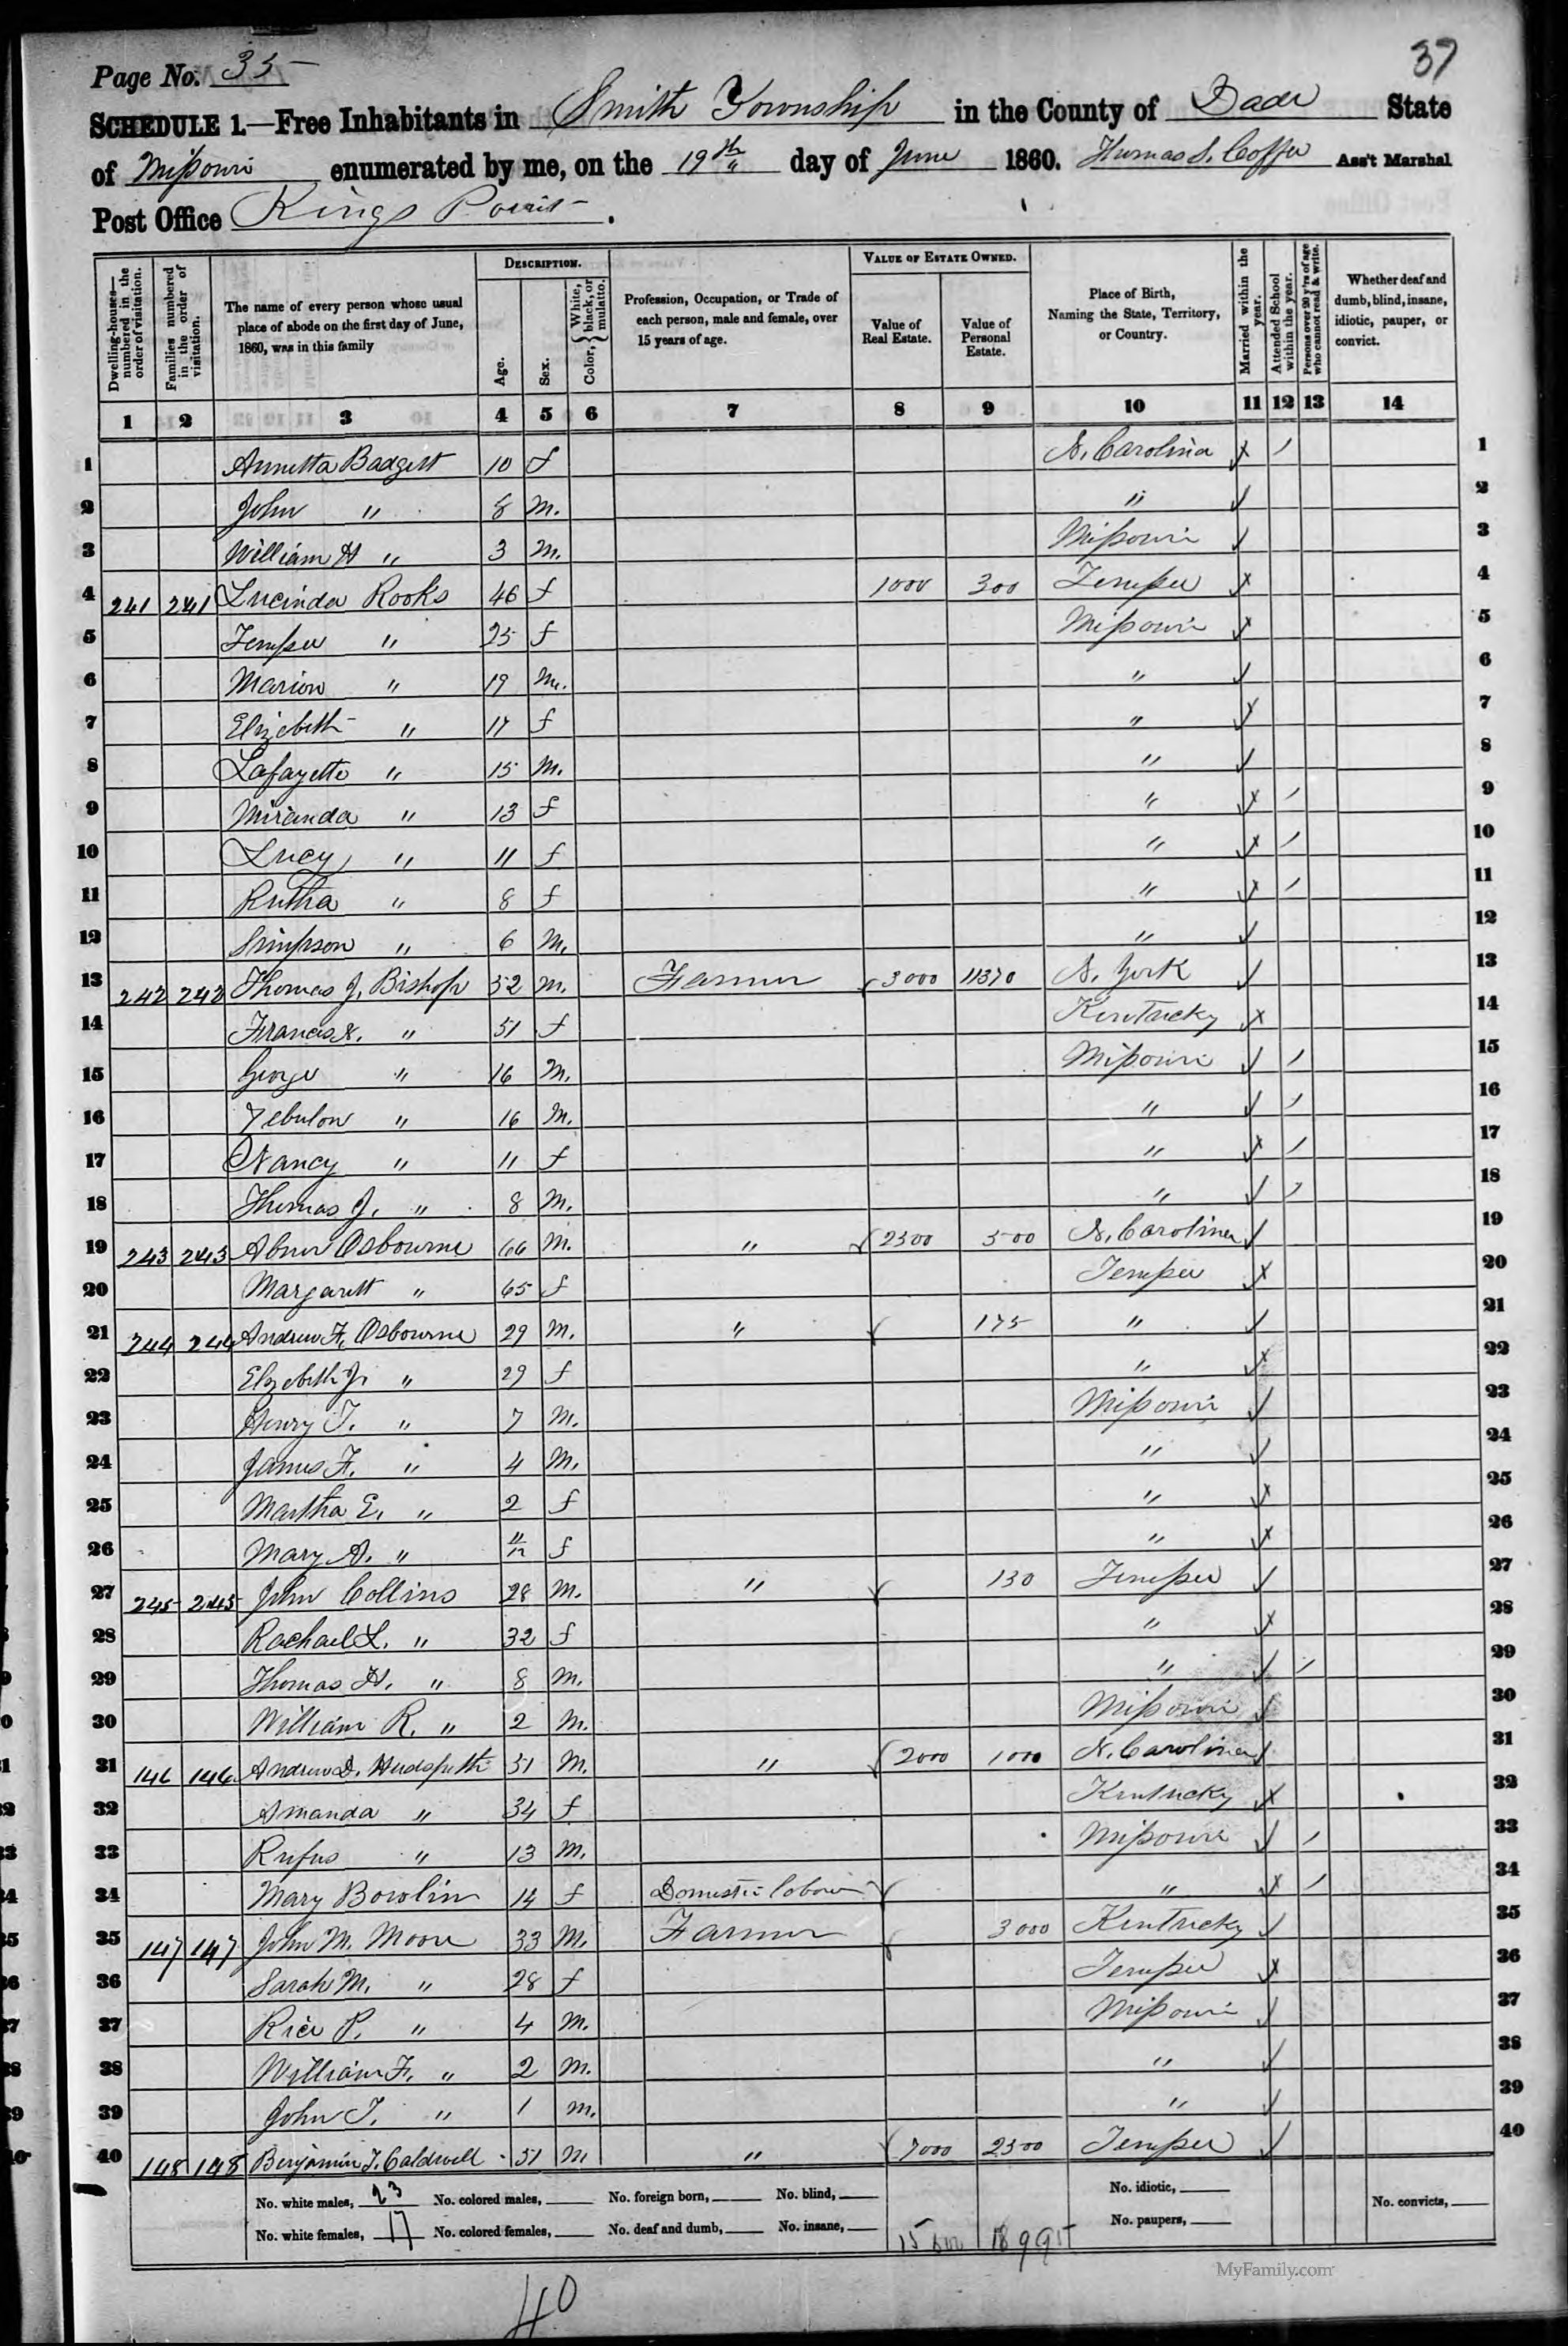 37
Page No. 35
SCHEDULE 1.—Free Inhabitants in Smith Township in the County of Dade State
of Missouri enumerated by me, on the 19th day of June 1860. Thomas S. Coffee Ass't Marshal
Post Office Kings Point.
Dwelling-houses—numbered in the order of visitation.
Families numbered in the order of visitation.
The name of every person whose usual place of abode on the first day of June, 1860, was in this family
DESCRIPTION.
Age.
Sex.
Color, { White, black, or mulatto. }
Profession, Occupation, or Trade of each person, male and female, over 15 years of age.
VALUE OF ESTATE OWNED.
Value of Real Estate.
Value of Personal Estate.
Place of Birth, Naming the State, Territory, or Country.
Married within the year.
Attended School within the year.
Persons over 20 y'rs of age who cannot read & write.
Whether deaf and dumb, blind, insane, idiotic, pauper, or convict.
1 2 3 4 5 6 7 8 9 10 11 12 13 14
1 Annetta Badgett 10 f N. Carolina / 1
2 John " 8 m. " 2
3 William H " 3 m. Missouri 3
4 241 241 Lucinda Rooks 46 f 1000 300 Tennessee 4
5 Tennessee " 25 f Missouri 5
6 Marion " 19 m. " 6
7 Elizebeth " 17 f " 7
8 Lafayette " 15 m. " 8
9 Miranda " 13 f " / 9
10 Lucy " 11 f " / 10
11 Rutha " 8 f " / 11
12 Simpson " 6 m. " 12
13 242 242 Thomas J. Bishop 52 m. Farmer 3000 11370 N. York 13
14 Francis " 51 f Kentucky 14
15 George " 16 m. Missouri / 15
16 Zebulon " 16 m. " / 16
17 Nancy " 11 f " / 17
18 Thomas J. " 8 m. " / 18
19 243 243 Abner Osbourne 66 m. " 2500 500 N. Carolina 19
20 Margarett " 65 f Tennessee 20
21 244 244 Andrew F. Osbourne 29 m. " 175 " 21
22 Elizebeth J. " 29 f " 22
23 Henry T. " 7 m. Missouri 23
24 James F. " 4 m. " 24
25 Martha E. " 2 f " 25
26 Mary A. " 11/12 f " 26
27 245 245 John Collins 28 m. " 130 Tennessee 27
28 Rachael L. " 32 f " 28
29 Thomas H. " 8 m. " / 29
30 William R. " 2 m. Missouri 30
31 146 146 Andrew D. Hudspeth 51 m. " 2000 1000 N. Carolina 31
32 Amanda " 34 f Kentucky 32
33 Rufus " 13 m. Missouri / 33
34 Mary Bowlin 14 f Domestic labour " / 34
35 147 147 John M. Moore 33 m. Farmer 3000 Kentucky 35
36 Sarah M. " 28 f Tennessee 36
37 Rice P. " 4 m. Missouri 37
38 William F. " 2 m. " 38
39 John T. " 1 m. " 39
40 148 148 Benjamin T. Caldwell 51 m " 7000 2500 Tennessee 40
No. white males, 23 No. colored males, No. foreign born, No. blind, No. idiotic,
No. white females, 17 No. colored females, No. deaf and dumb, No. insane, No. paupers, No. convicts,
18995
MyFamily.com
40